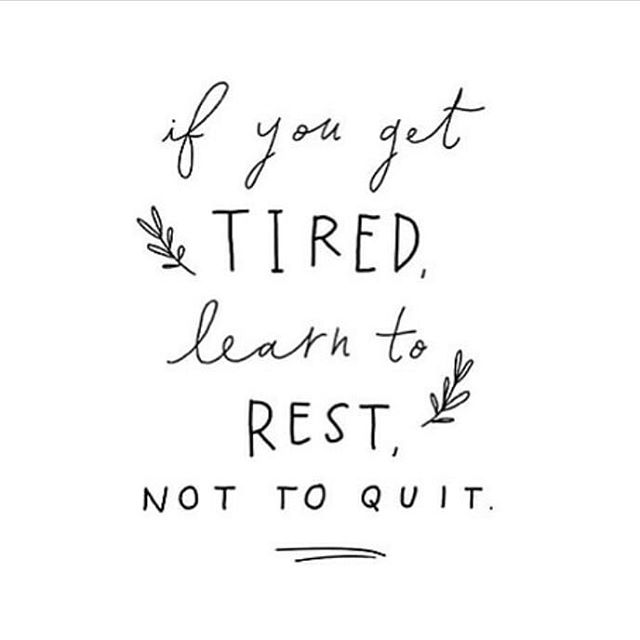 if you get
TIRED,
learn to
REST,
NOT TO QUIT.